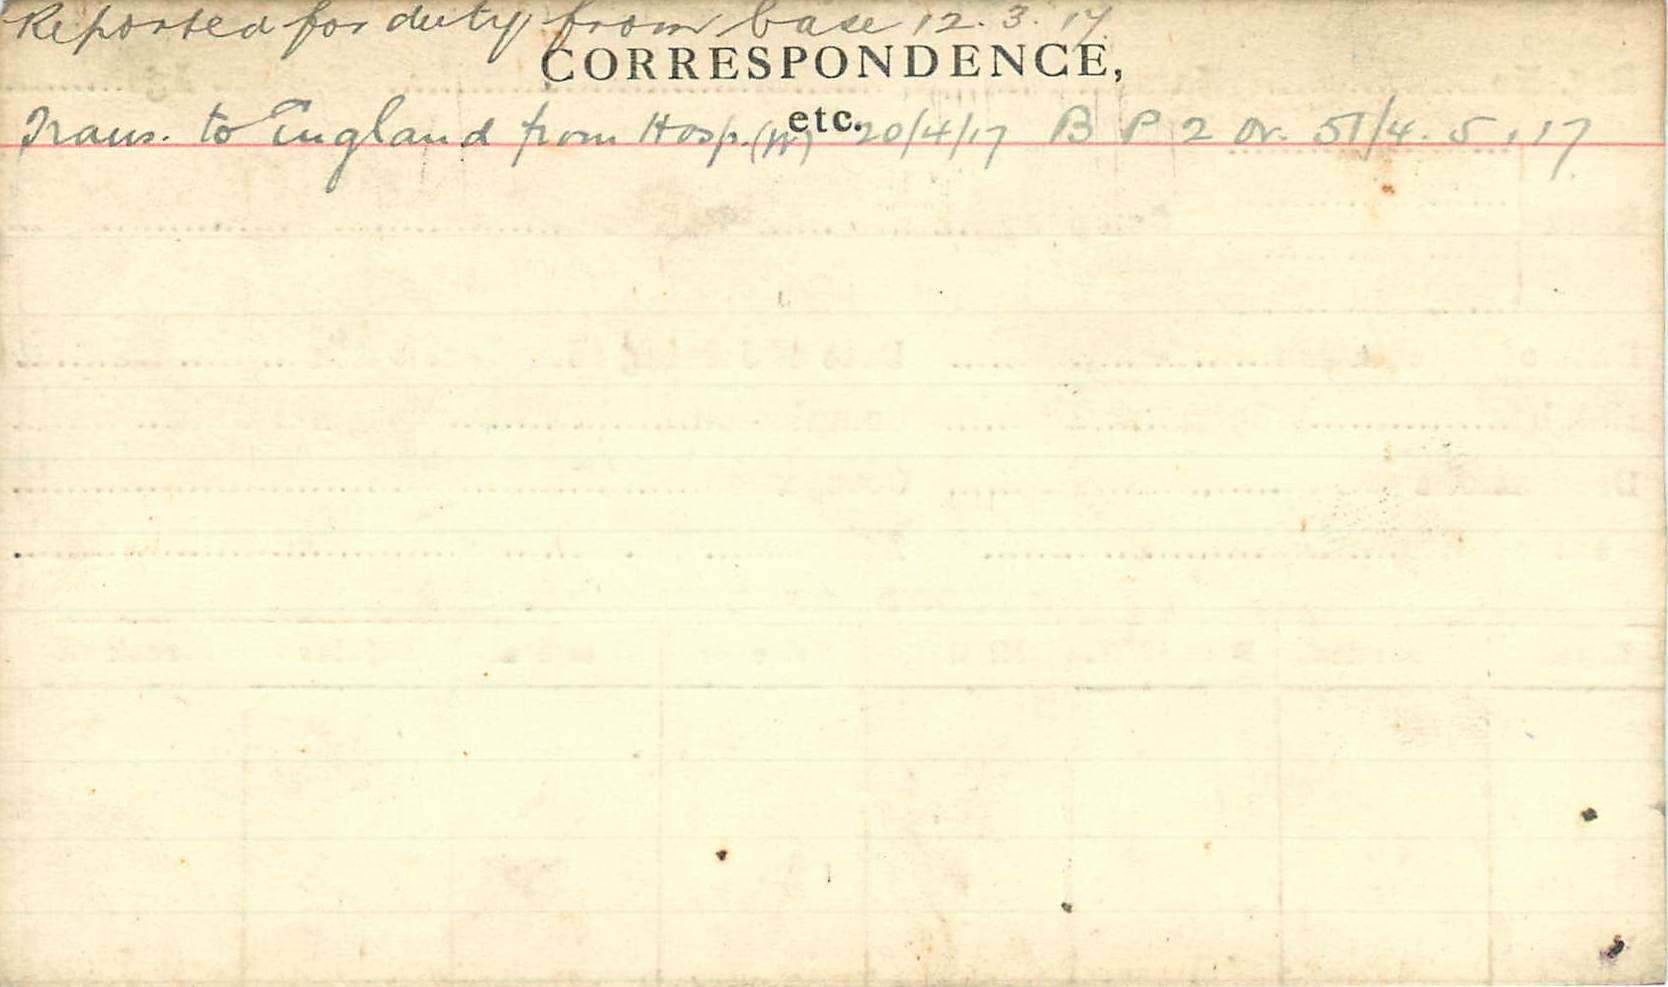 Reported for duty from base 12.3.17
CORRESPONDENCE,
etc.
Trans. to England from Hosp. (W) 20/4/17 B P 2 Or. 51/4.5.17